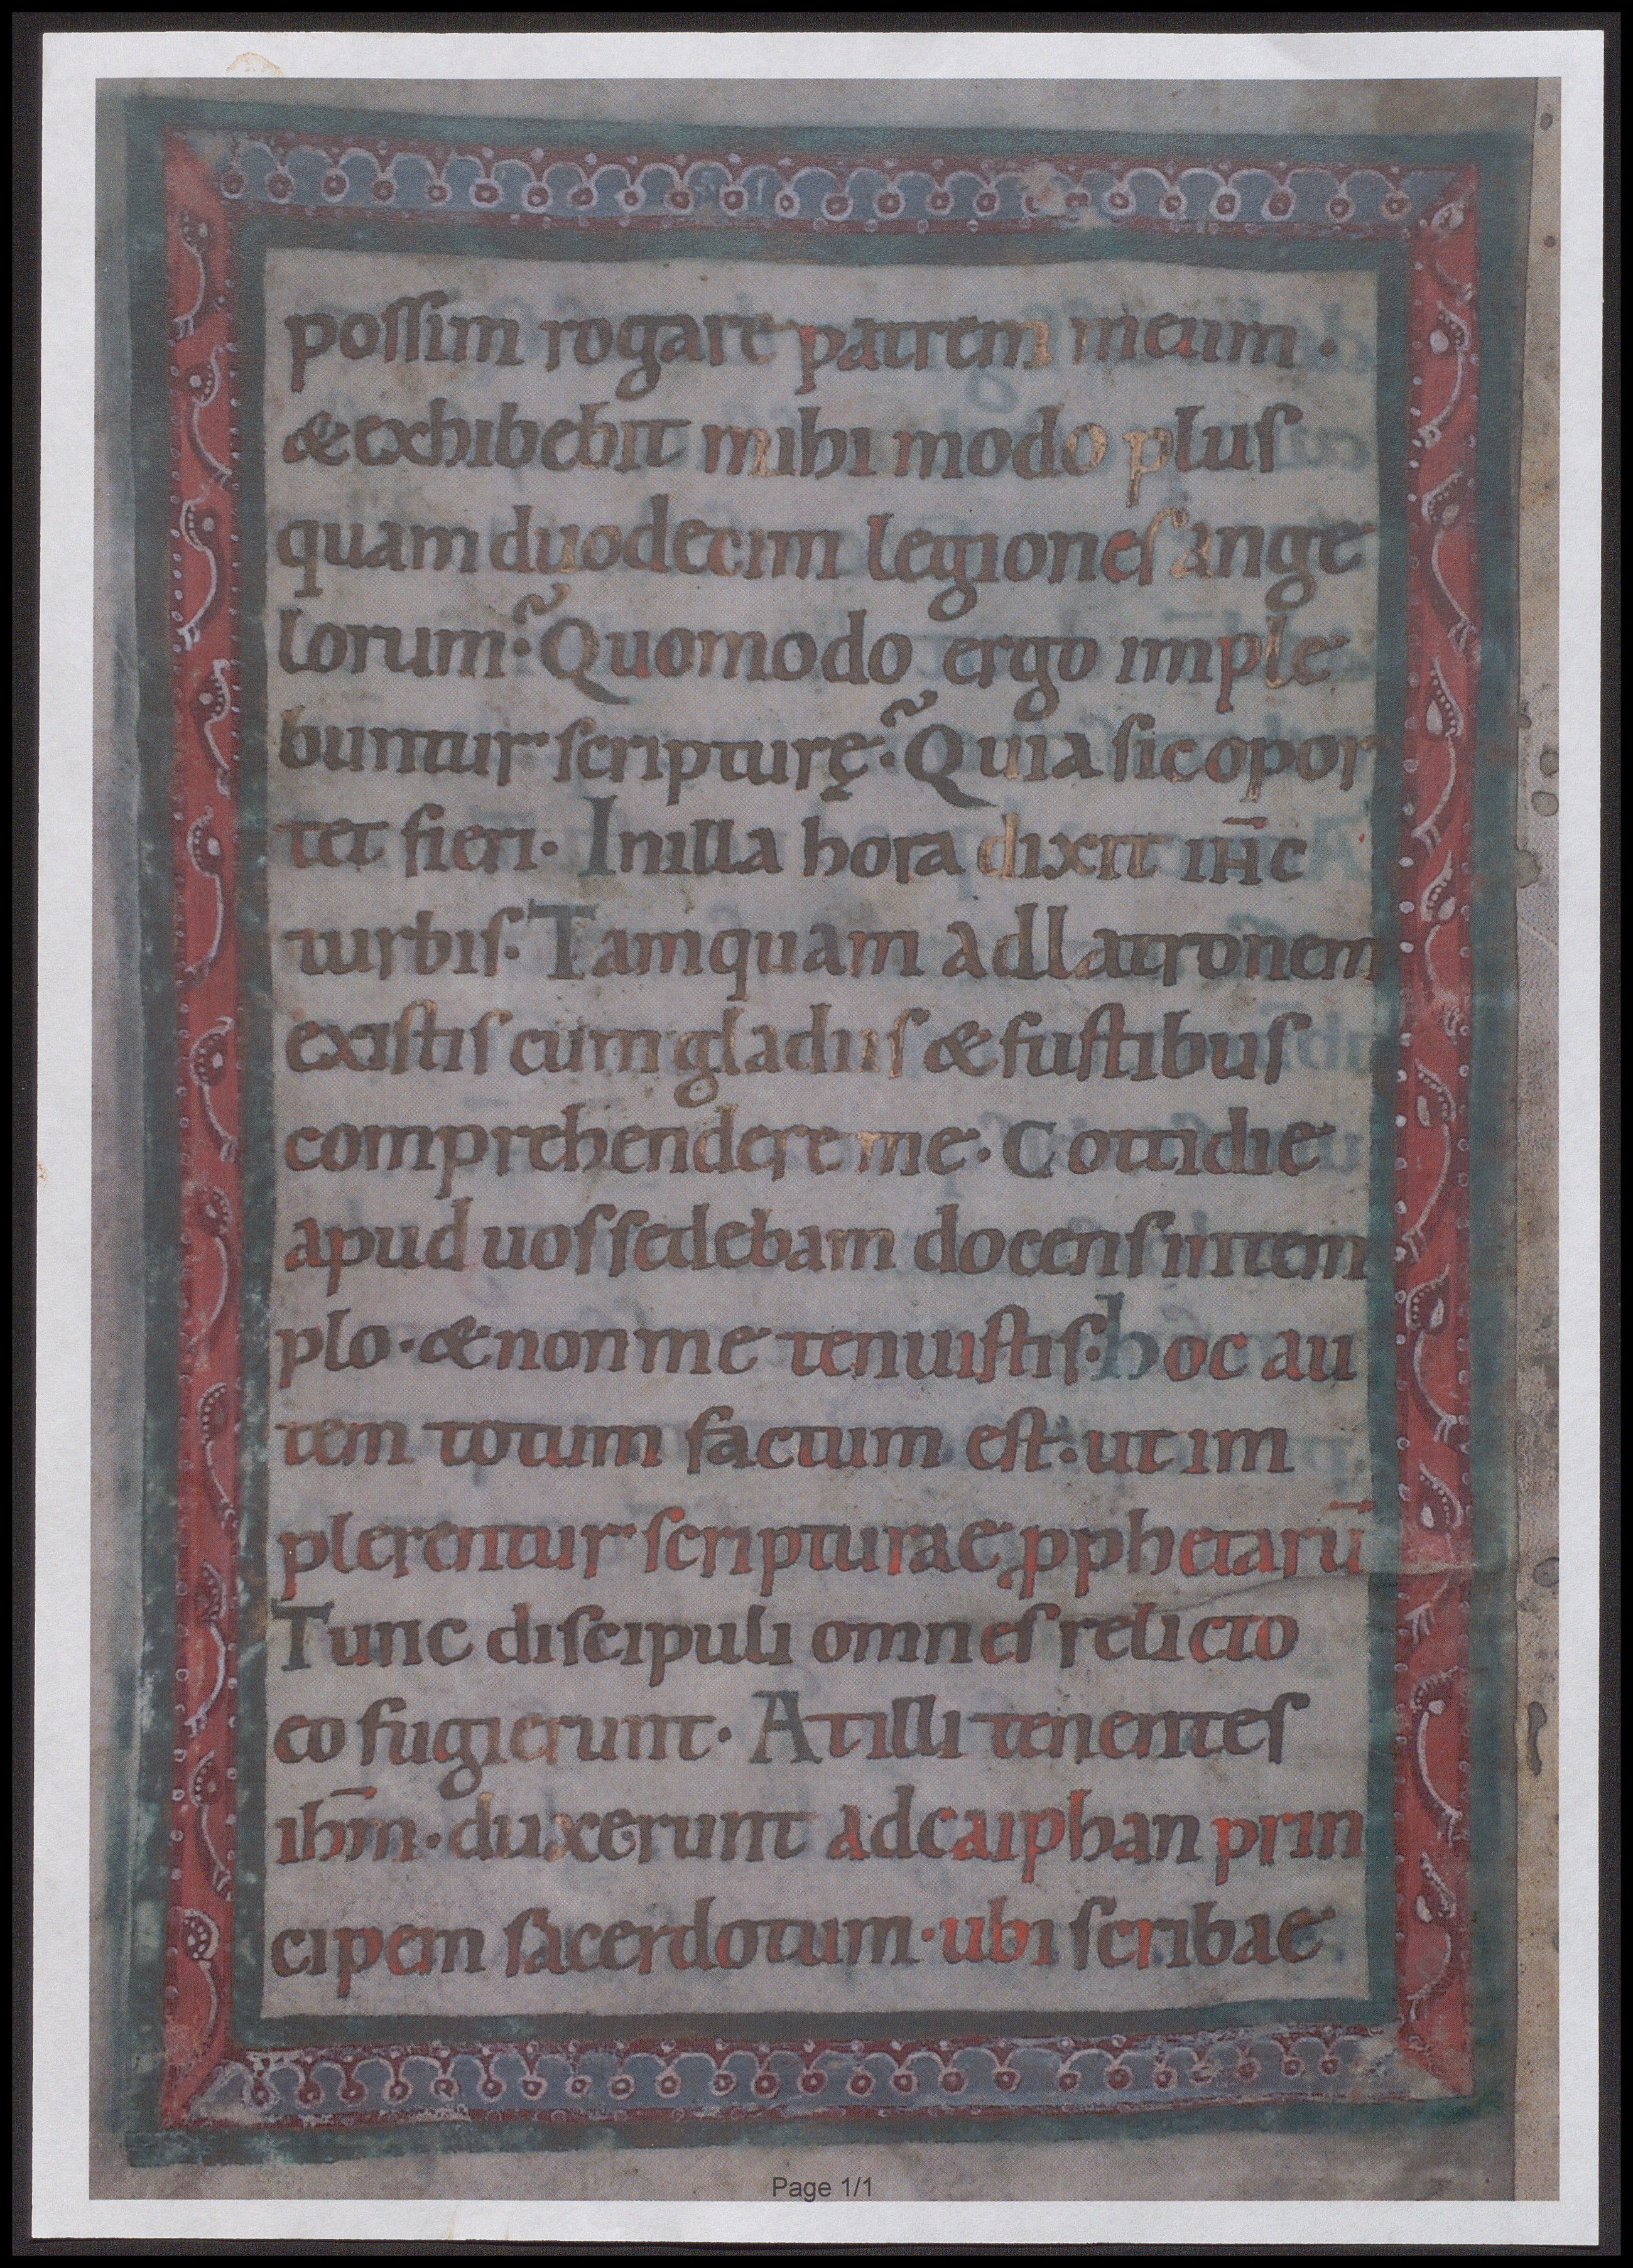 possim rogare patrem meum·
& exhibebit mihi modo plus
quam duodecim legiones ange
lorum? Quomodo ergo imple
buntur scripturę? Quia sic opor
tet fieri· In illa hora dixit ιħc̄
turbis· Tamquam ad latronem
existis cum gladiis & fustibus
comprehendere me· Cottidie
apud uos sedebam docens in tem
plo· & non me tenuistis· hoc au
tem totum factum est· ut im
plerentur scripturae ꝓphetarū
Tunc discipuli omnes relicto
eo fugierunt· At illi tenentes
ihm̄· duxerunt ad caiphan prin
cipem sacerdotum· ubi scribae
Page 1/1